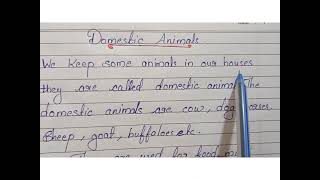 Domestic Animals
We keep some animals in our houses
they are called domestic animal The
domestic animals are cow, dog orses.
Sheep, goat, buffaloes etc.
are used for food